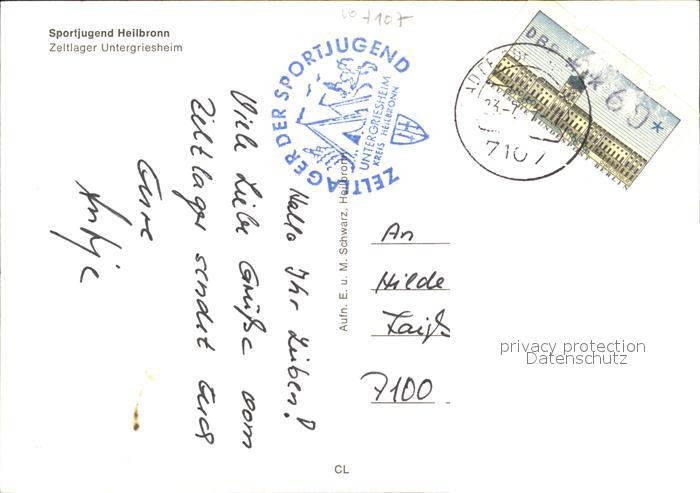 Sportjugend Heilbronn
Zeltlager Untergriesheim
7107
ZELTLAGER DER SPORTJUGEND
UNTERGRIESHEIM
KREIS HEILBRONN
DBP
69*
BERLIN
7107
Hallo Ihr Lieben!
Viele Liebe Grüße vom
Zeltlager sendet Euch
Eure
Antje
Aufn. E. u. M. Schwarz, Heilbronn
An
Hilde
7100
privacy protection
Datenschutz
CL